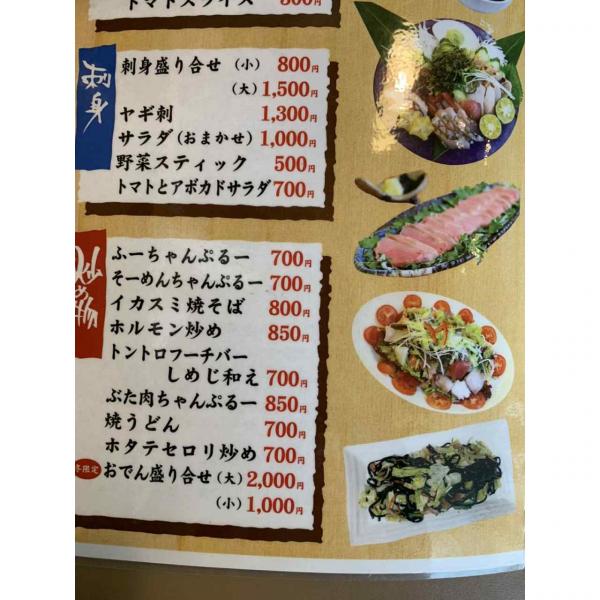 トマトスライス 500円
刺身
刺身盛り合せ (小) 800円
(大) 1,500円
ヤギ刺 1,300円
サラダ (おまかせ) 1,000円
野菜スティック 500円
トマトとアボカドサラダ 700円
炒め物
ふーちゃんぷるー 700円
そーめんちゃんぷるー 700円
イカスミ焼そば 800円
ホルモン炒め 850円
トントロフーチバー
しめじ和え 700円
ぶた肉ちゃんぷるー 850円
焼うどん 700円
ホタテセロリ炒め 700円
冬限定 おでん盛り合せ (大) 2,000円
(小) 1,000円